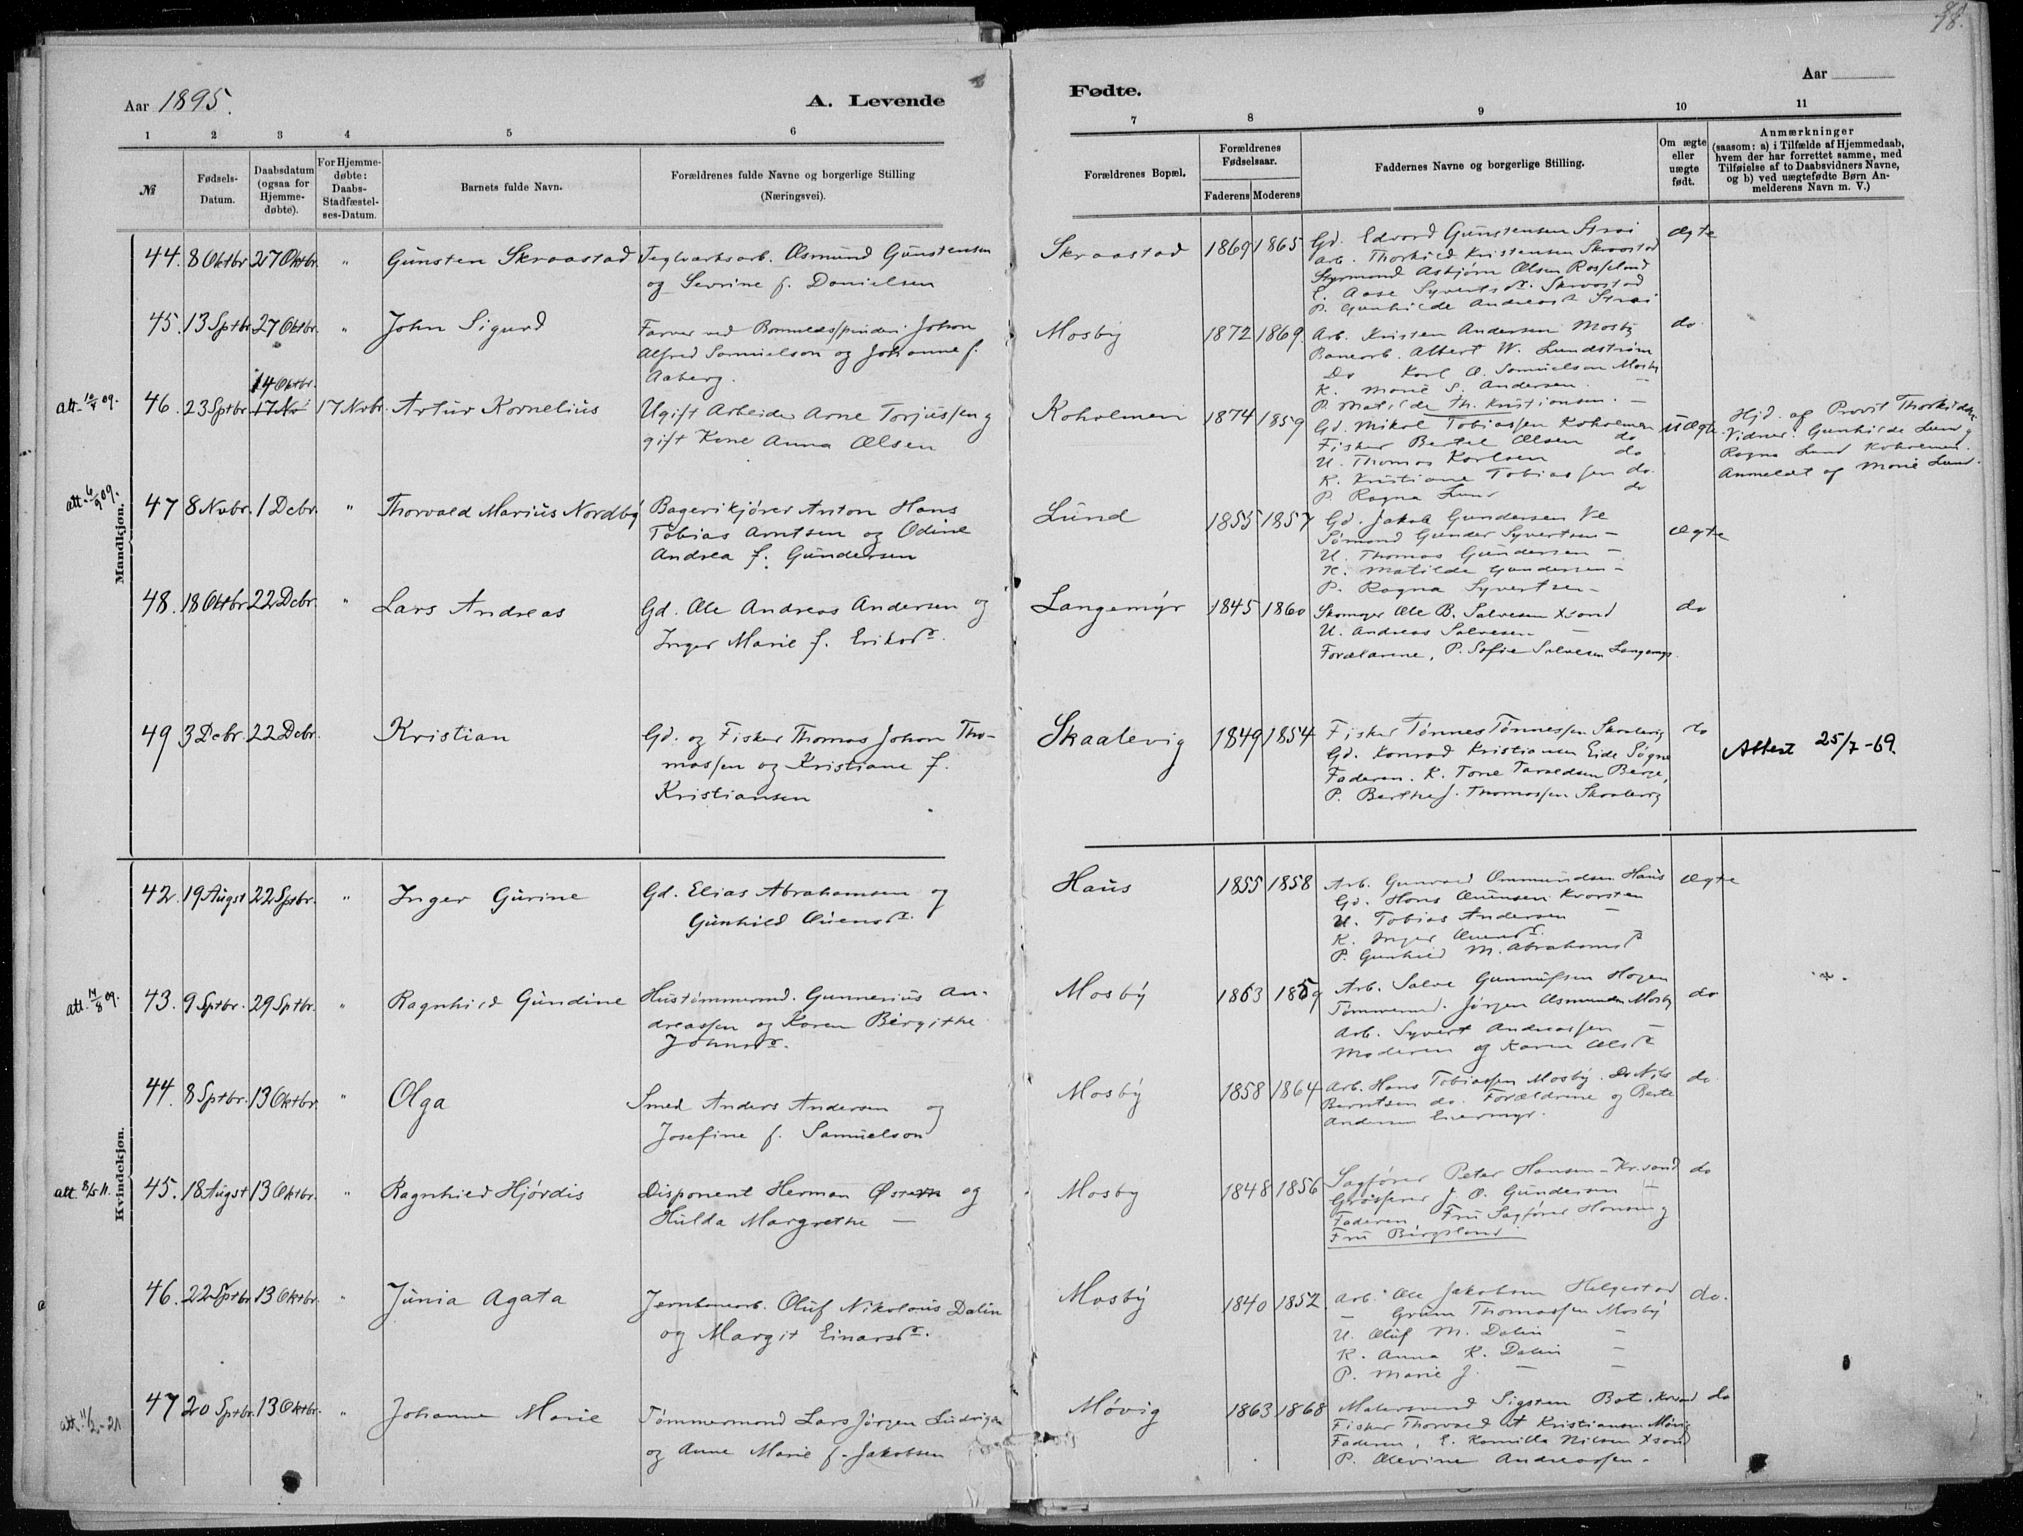 98.
Aar 1895.
A. Levende
Fødte.
Aar
1 2 3 4 5 6 7 8 9 10 11
№
Fødsels-
Datum.
Daabsdatum
(ogsaa for
Hjemme-
døbte).
For Hjemme-
døbte:
Daabs-
Stadfæstel-
ses-Datum.
Barnets fulde Navn.
Forældrenes fulde Navne og borgerlige Stilling
(Næringsvei).
Forældrenes Bopæl.
Forældrenes
Fødselsaar.
Faderens Moderens
Faddernes Navne og borgerlige Stilling.
Om ægte
eller
uægte
født.
Anmærkninger
(saasom: a) i Tilfælde af Hjemmedaab,
hvem der har forrettet samme, med
Tilføielse af to Daabsvidners Navne,
og b) ved uægtefødte Børn An-
melderens Navn m. V.)
Mandkjøn.
44. 8 Oktbr. 27 Oktbr. " Gunsten Skraastad
Teglværksarb. Osmund Gunstensen
og Sevrine f. Danielsen
Skraastad 1869 1865
Gd. Edvard Gunstensen Strai
Arb. Thorkild Kristensen Skraastad
Styrmand Asbjørn Olsen Rosseland
E. Aase Syvertsdr. Skraastad
P. Gunhilde Andreasd. Strai
Ægte
45. 13 Sptbr. 27 Oktbr. " John Sigurd
Farver ved Bomuldsspinderi Johan
Alfred Samuelson og Johanne f.
Aaberg.
Mosby 1872 1869
Arb. Kristen Andersen Mosby
Banearb. Albert W. Lundstrøm
Do Karl O. Samuelson Mosby
K. Marie S. Andersen. —
P. Matilde Th. Kristiansen. —
do
att. 10/4 09.
46. 23 Sptbr. 14 Oktbr. 17 Nv 17 Nvbr. Artur Kornelius
Ugift Arbeider Arne Torjussen og
gift Kone Anna Olsen
Koholmen 1874 1859
Gd. Mikal Tobiassen Koholmen
Fisker Bertel Olsen do
U. Thomas Karlsen do
K. Kristiane Tobiassen do.
P. Ragna Lund do
Uægte.
Hjd. af Provst Thorkildsen.
Vidner: Gunhilde Lund og
Ragna Lund Koholmen.
Anmeldt af Marie Lund.
att. 6/9 09.
47 8 Nvbr. 1 Dcbr. " Thorvald Marius Nordby
Bagerikjører Anton Hans
Tobias Arntsen og Odine
Andrea f. Gundersen
Lund 1855 1857
Gd. Jakob Gundersen Ve
Sømand Gunder Syvertsen —
U. Thomas Gundersen —
K. Matilde Gundersen —
P. Ragna Syvertsen —
Ægte
48. 18 Oktbr. 22 Dcbr. " Lars Andreas
Gd. Ole Andreas Andersen og
Inger Marie f. Eriksdr.
Langemyr 1845 1860
Skomger Ole B. Salvesen Xsand
U. Andreas Salvesen —
Forældrene, P. Sofie Salvesen Langemyr.
do
49 3 Dcbr. 22 Dcbr. Kristian
Gd. og Fisker Thomas Johan Tho-
massen og Kristiane f.
Kristiansen
Skaalevig 1849 1854
Fisker Tønnes Tønnessen Skaalevig
Gd. Konrad Kristiansen Eide Søgne
Faderen. K. Tone Taraldsen Berge,
P. Berthe J. Thomassen Skaalevig
do
Attest 25/7-69.
Kvindekjøn.
42. 19 Augst 22 Sptbr. " Inger Gurine
Gd. Elias Abrahamsen og
Gunhild Ouensdr.
Haus 1855 1858
Arb. Gunvald Ommundsen Haus
Gd. Hans Ouensen Kvarsten
U. Tobias Andersen —
K. Inger Ouensdr.
P. Gunhild M. Abrahamsdr.
Ægte
att. 14/8 09.
43. 9 Sptbr. 29 Sptbr. " Ragnhild Gundine
Hustømmermd. Gunnerius An-
dreassen og Karen Birgithe
Johnsdr.
Mosby 1863 1859
Arb. Salve Gunnufsen Hagen
Tømmermd. Jørgen Osmundsen Mosby
Arb. Syvert Andreassen —
Moderen og Karen Olsdr.
do
44. 8 Sptbr. 13 Oktbr. " Olga
Smed Anders Andersen og
Josefine f. Samuelson
Mosby 1858 1864
Arb. Hans Tobiassen Mosby. Do Nils
Berntsen do. Forældrene og Berte
Andersen Eikermyr.
do
att. 8/5 11.
45. 18 Augst 13 Oktbr. " Ragnhild Hjørdis
Disponent Herman Østern og
Hulda Margrethe —
Mosby 1848 1856
Sagfører Peter Hansen - Kr.sand
Grosserer J. O. Gundersen —
Faderen, Fru Sagfører Hansen og
Fru Birgsland
do
46. 22 Sptbr 13 Oktbr. " Junia Agata
Jernbanearb. Oluf Nikolaus Dalin
og Margit Einarsdr.
Mosby 1840 1852
Arb. Ole Jakobsen Helgestad
— Grum Thomassen Mosby
U. Oluf M. Dalin —
K. Anna K. Dalin —
P. Marie J. — —
do.
att. 11/2-21
47 20 Sptbr. 13 Oktbr. " Johanne Marie
Tømmermand Lars Jørgen Ludvigsen
og Anne Marie f. Jakobsen
Møvig 1863 1868
Matersvend Sigsten Bot. Krsand
Fisker Thorvald A Kristiansen Møvig
Faderen, E. Kamilla Nilsen Xsand
P. Olevine Andreassen.
do